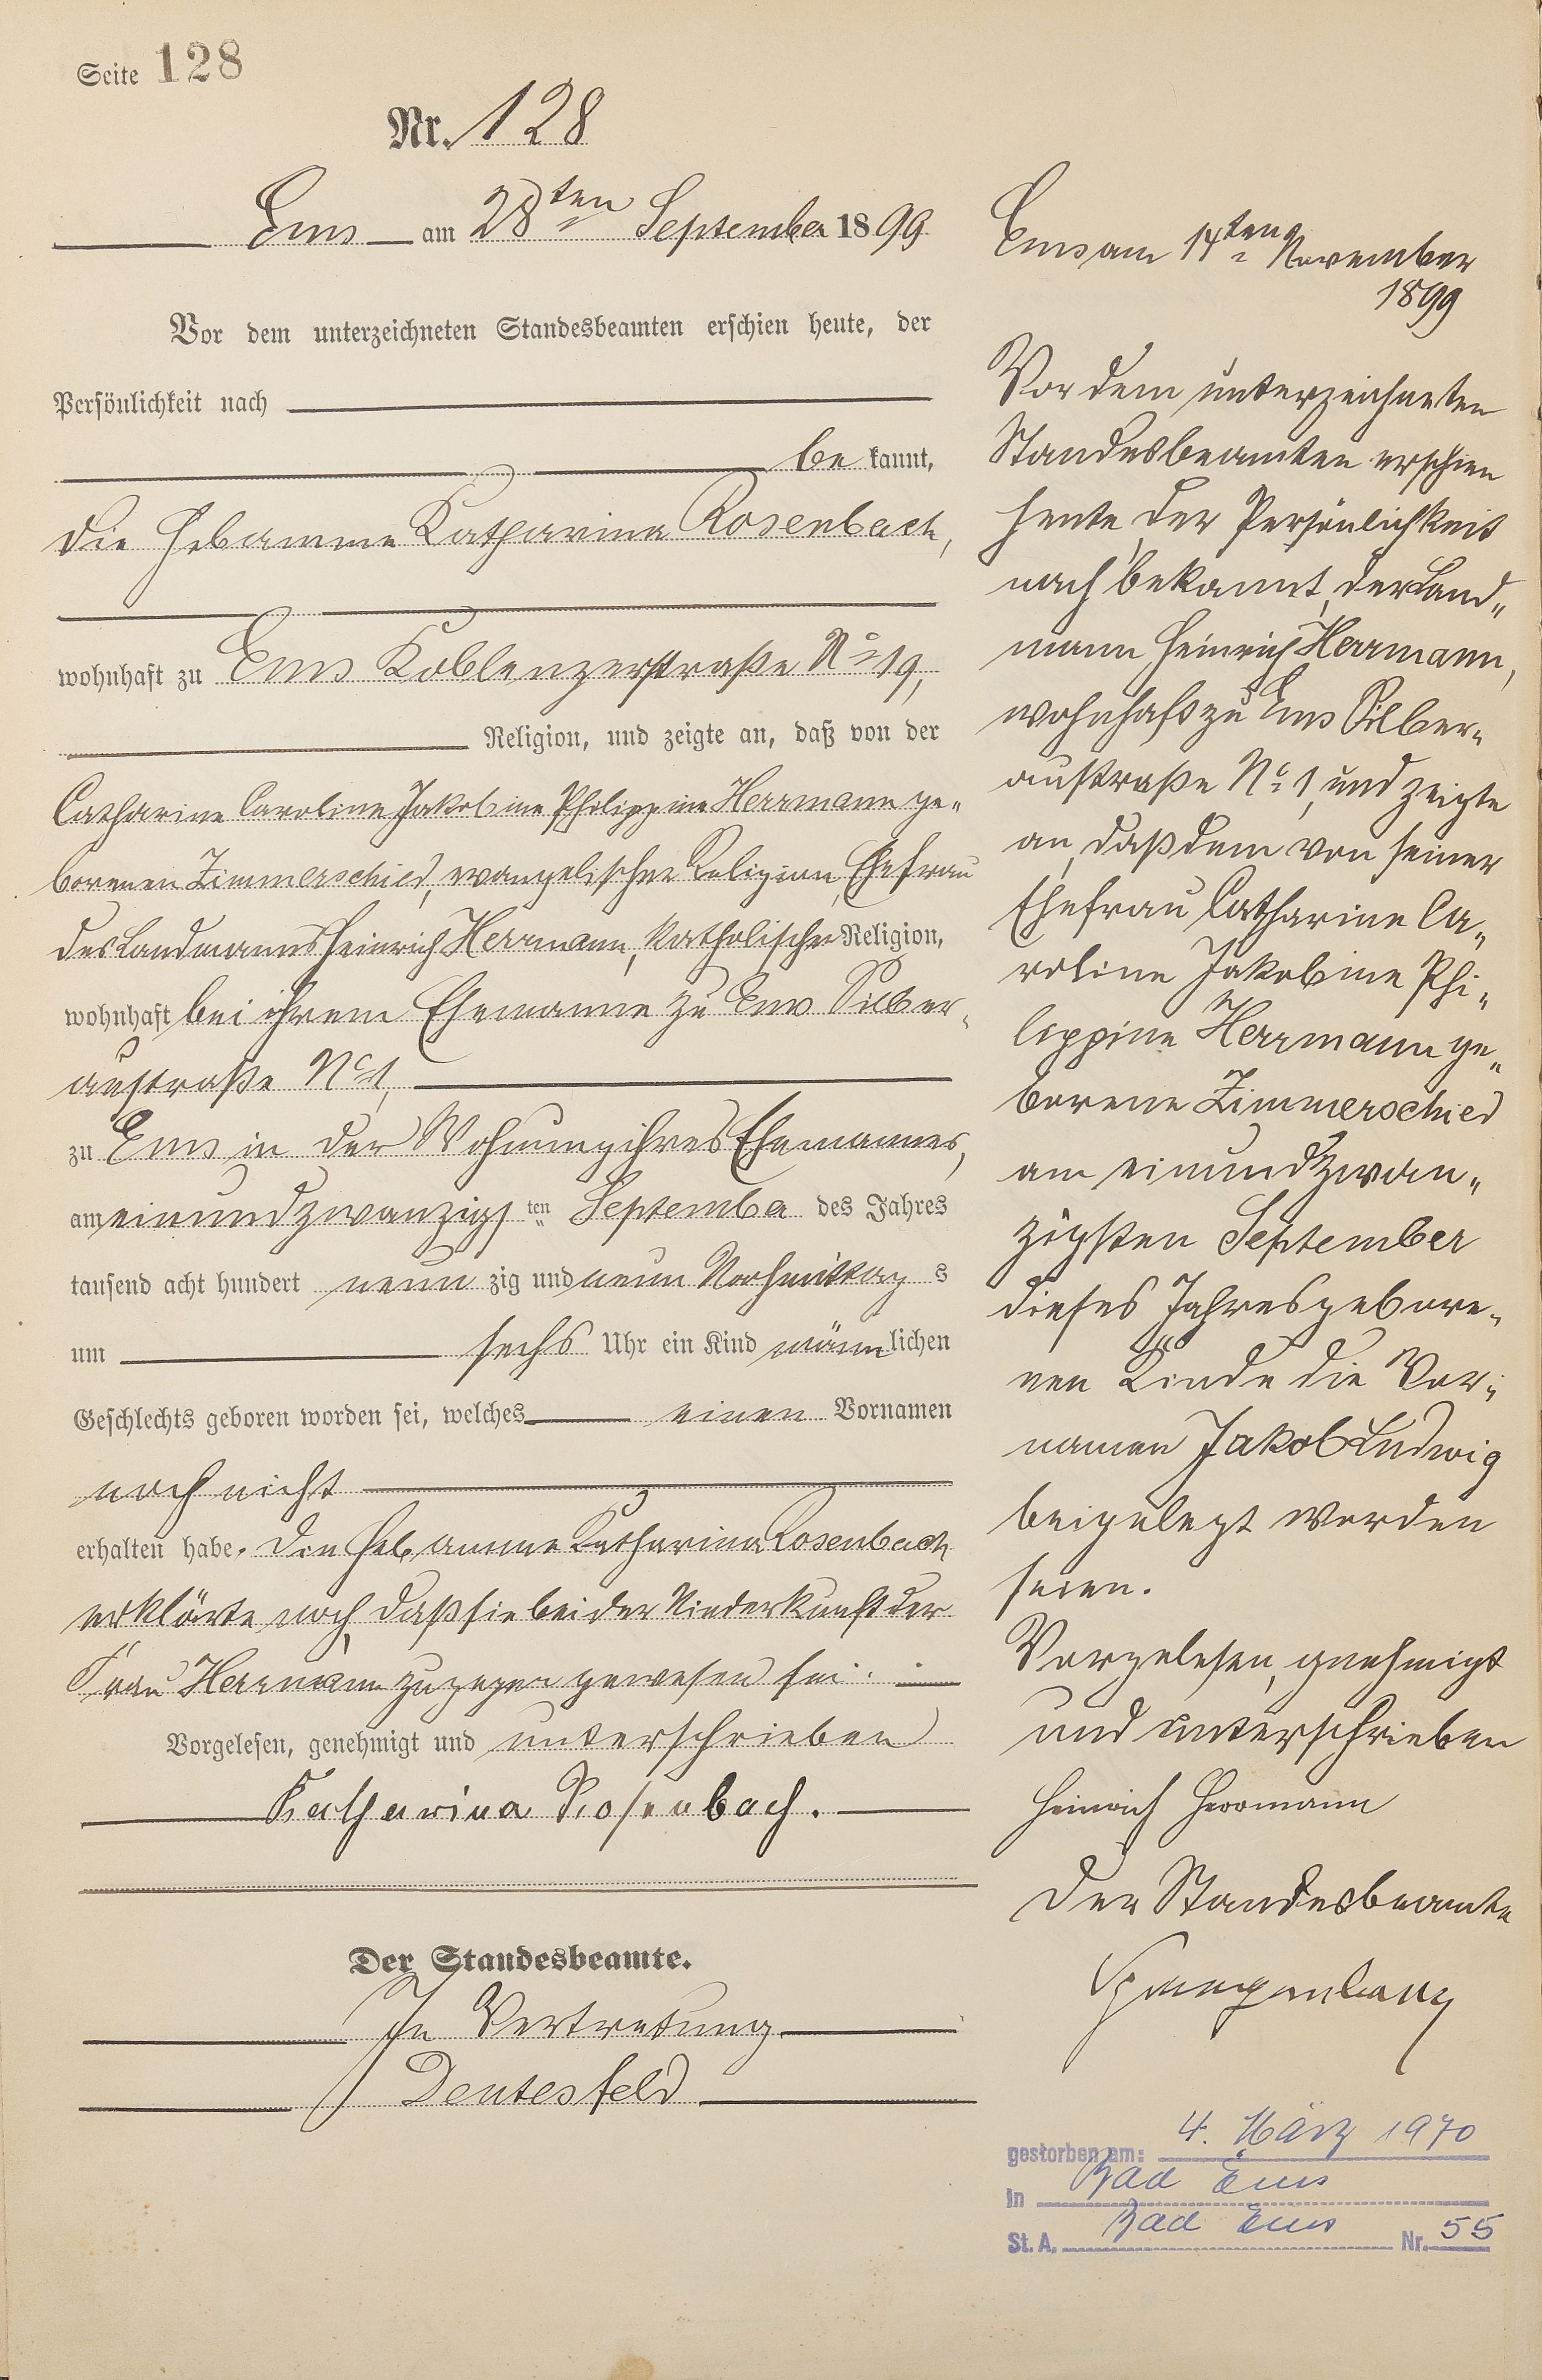 Seite 128
Nr. 128
Ems am 28ten September 1899
Vor dem unterzeichneten Standesbeamten erschien heute, der
Persönlichkeit nach
be kannt,
die Hebamme Katharina Rosenbach,
wohnhaft zu Ems Koblenzerstraße No 19,
Religion, und zeigte an, daß von der
Catharine Caroline Jakobine Philippine Herrmann ge„
borenen Zimmerschied, evangelischer Religion, Ehefrau
des Landmanns Heinrich Herrmann, katholischer Religion,
wohnhaft bei ihrem Ehemanne zu Ems Silber„
austraße No 1,
zu Ems in der Wohnung ihres Ehemannes,
am einundzwanzigsten September des Jahres
tausend acht hundert neun zig und neun Nachmittag s
um sechs Uhr ein Kind männlichen
Geschlechts geboren worden sei, welches einen Vornamen
noch nicht
erhalten habe. Die Hebamme Katharina Rosenbach
erklärte noch, daß sie bei der Niederkunft der
Frau Herrmann zugegen gewesen sei.
Vorgelesen, genehmigt und unterschrieben
Katharina Rosenbach.
Der Standesbeamte.
In Vertretung
Deutesfeld
Ems am 14ten November
1899
Vor dem unterzeichneten
Standesbeamten erschien
heute, der Persönlichkeit
nach bekannt, der Land„
mann Heinrich Herrmann,
wohnhaft zu Ems Silber„
austraße No 1, und zeigte
an, daß dem von seiner
Ehefrau Catharine Ca„
roline Jakobine Phi„
lippine Herrmann ge„
borene Zimmerschied
am einundzwan„
zigsten September
dieses Jahres gebore„
nen Kinde die Vor„
namen Jakob Ludwig
beigelegt worden
seien.
Vorgelesen, genehmigt
und unterschrieben
Heinrich Herrmann
Der Standesbeamte
Spangenberg
gestorben am: 4. März 1970
in Bad Ems
St. A. Bad Ems Nr. 55